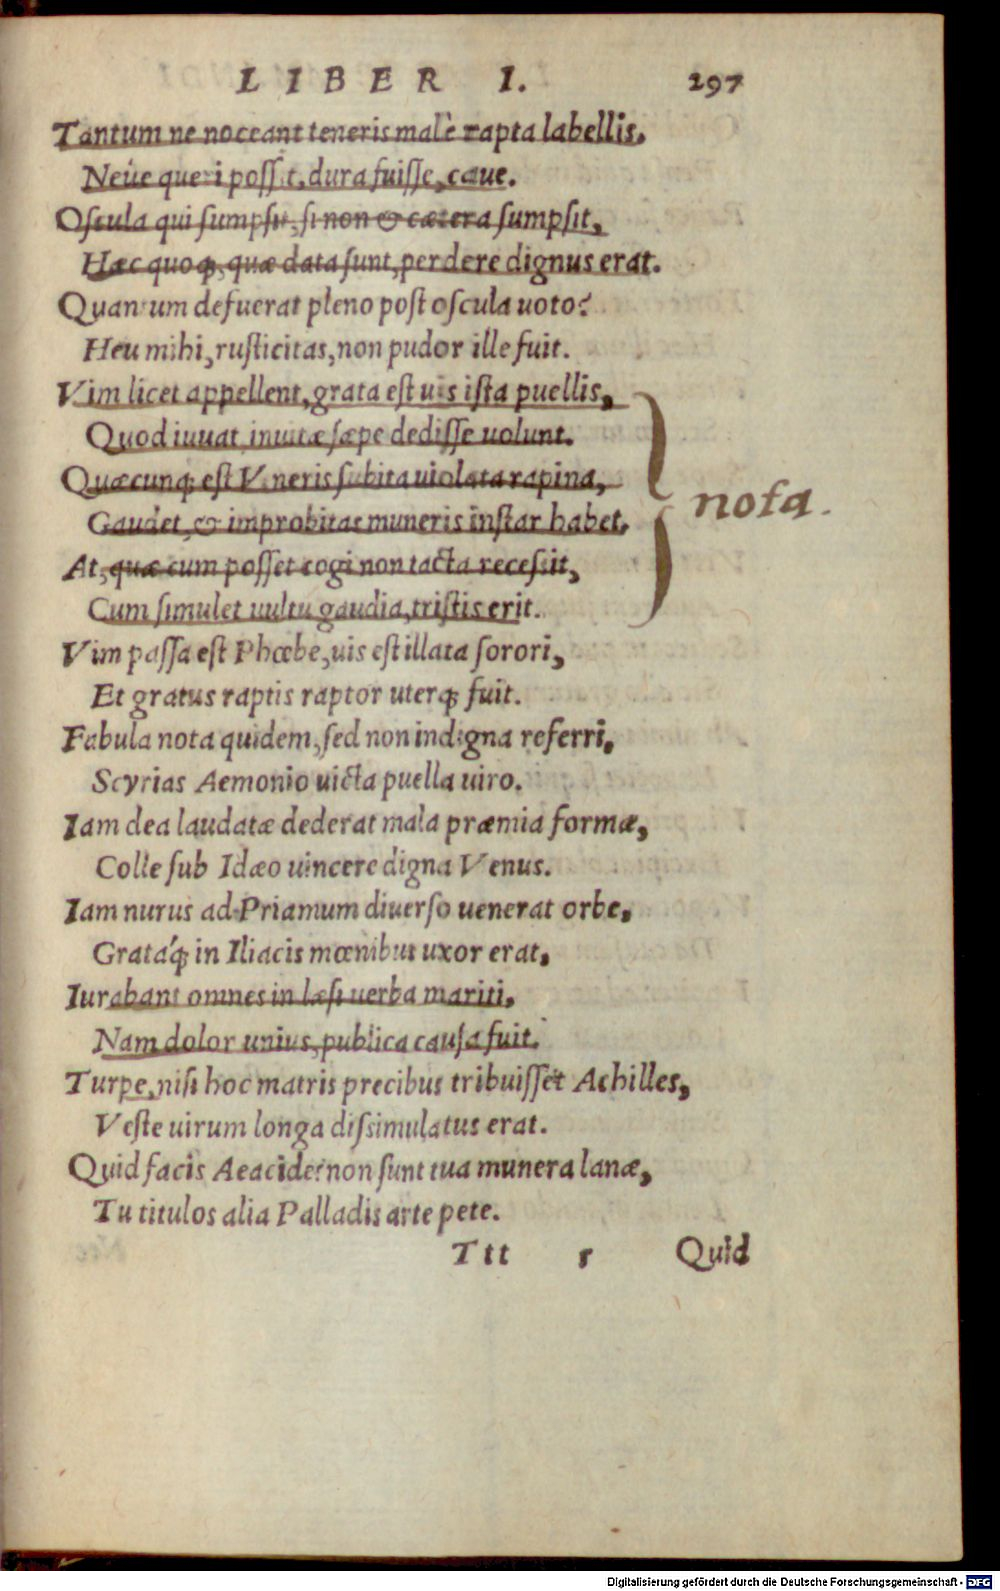 LIBER I. 297
Tantum ne noceant teneris malè rapta labellis,
Néue queri possit, dura fuisse, caue.
Oscula qui sumpsit, si non & cætera sumpsit,
Hæc quoq;, quæ data sunt, perdere dignus erat.
Quantum defuerat pleno post oscula uoto?
Heu mihi, rusticitas, non pudor ille fuit.
Vim licet appellent, grata est uis ista puellis,
Quod iuuat, inuitæ sæpe dedisse uolunt.
Quæcunq; est Veneris subita uiolata rapina,
Gaudet, & improbitas muneris instar habet.
nota.
At, quæ cum posset cogi non tacta recessit,
Cum simulet uultu gaudia, tristis erit.
Vim passa est Phœbe, uis est illata sorori,
Et gratus raptis raptor uterq; fuit.
Fabula nota quidem, sed non indigna referri,
Scyrias Aemonio uicta puella uiro.
Iam dea laudatæ dederat mala præmia formæ,
Colle sub Idæo uincere digna Venus.
Iam nurus ad Priamum diuerso uenerat orbe,
Gratáq; in Iliacis mœnibus uxor erat,
Iurabant omnes in læsi uerba mariti,
Nam dolor unius, publica causa fuit.
Turpe, nisi hoc matris precibus tribuisset Achilles,
Veste uirum longa dissimulatus erat.
Quid facis Aeacide? non sunt tua munera lanæ,
Tu titulos alia Palladis arte pete.
Ttt 5 Quid
Digitalisierung gefördert durch die Deutsche Forschungsgemeinschaft - DFG